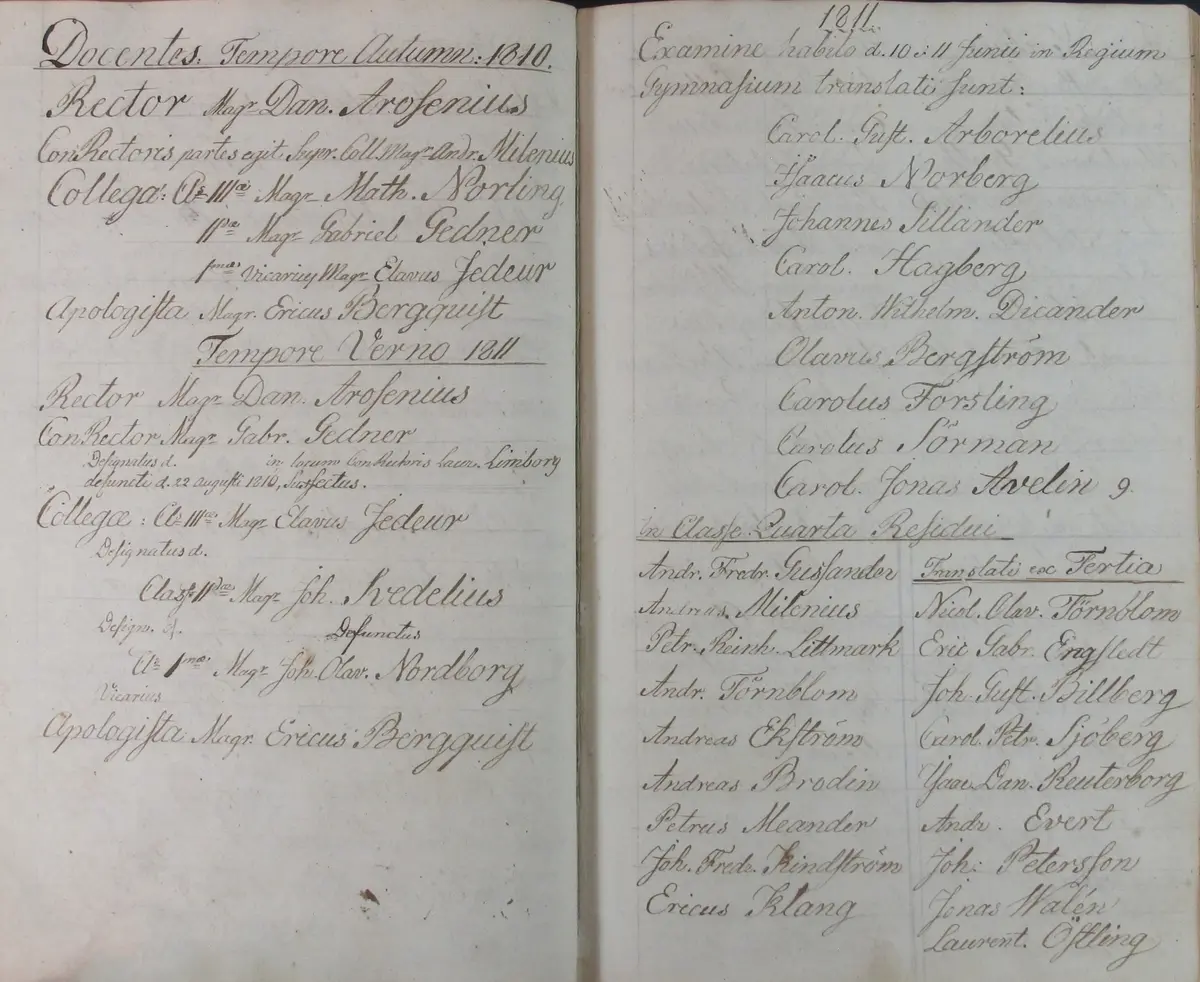 Docentes. Tempore Autumn: 1810.
Rector Magr Dan. Arosenius
ConRectoris partes egit Supr. Coll. Magr Andr. Milenius
Collegæ: Cls IIIæ Magr Math. Norling
IIdæ Magr Gabriel Gedner
1mæ Vicarius Magr Elavus Jedeur
Apologista Magr. Ericus Bergquist
Tempore Verno 1811
Rector Magr Dan. Arosenius
ConRector Magr Gabr. Gedner
Designatus d. in locum ConRectoris Laur. Limborg
defuncti d. 22 augusti 1810, Suffectus.
Collegæ: Cls IIIæ Magr Elavus Jedeur
Designatus d.
Class IIdæ Magr Joh. Svedelius
Design. d. Defunctus
Cls 1mæ Magr Joh. Olav. Nordborg
Vicarius
Apologista Magr. Ericus Bergquist
1811
Examine habito d. 10 & 11 Junii in Regium
Gymnasium translati sunt:
Carol. Gust. Arborelius
Isaacus Norberg
Johannes Silländer
Carol. Hagberg
Anton. Wilhelm. Dicander
Olavus Bergström
Carolus Forsling
Carolus Sörman
Carol. Jonas Avelin 9.
In Classe Quarta Residui
Andr. Fredr. Gussander
Andreas Milenius
Petr. Reinh. Littmark
Andr. Törnblom
Andreas Ekström
Andreas Brodin
Petrus Meander
Joh. Fredr. Kindström
Ericus Klang
Translati ex Tertia
Nicol. Olav. Törnblom
Eric Gabr. Engstedt
Joh. Gust. Billberg
Carol. Petr. Sjöberg
Isaac Dan. Reuterborg
Andr. Evert
Joh: Petersson
Jonas Walén
Laurent. Östling